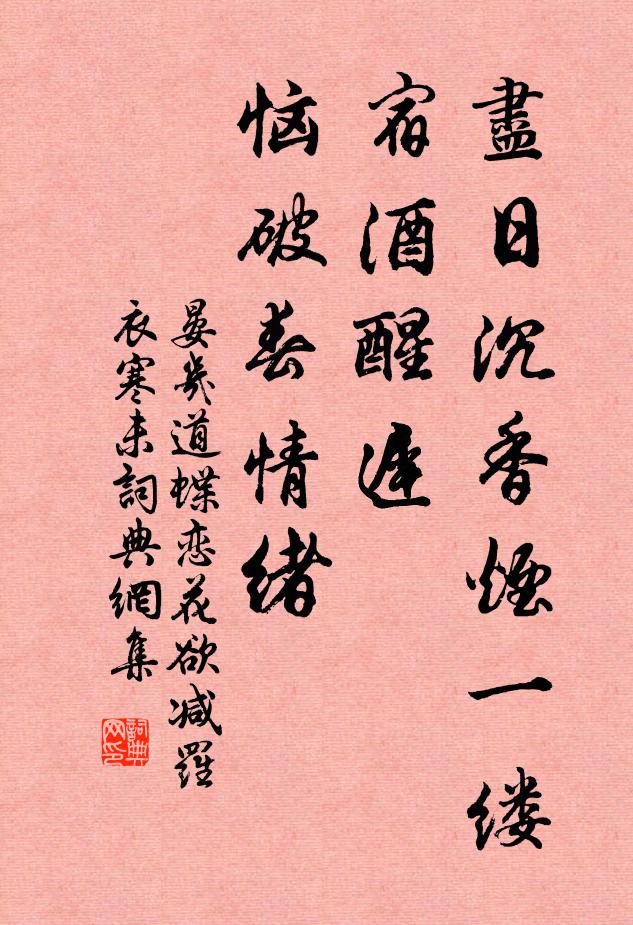 盡日沉香煙一缕
宿酒醒遲
恼破春情绪
晏幾道蝶恋花欲减羅
衣寒未詞典網集
詞典
网印